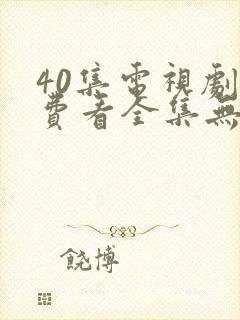 40集電視劇
費看全集無
饒博